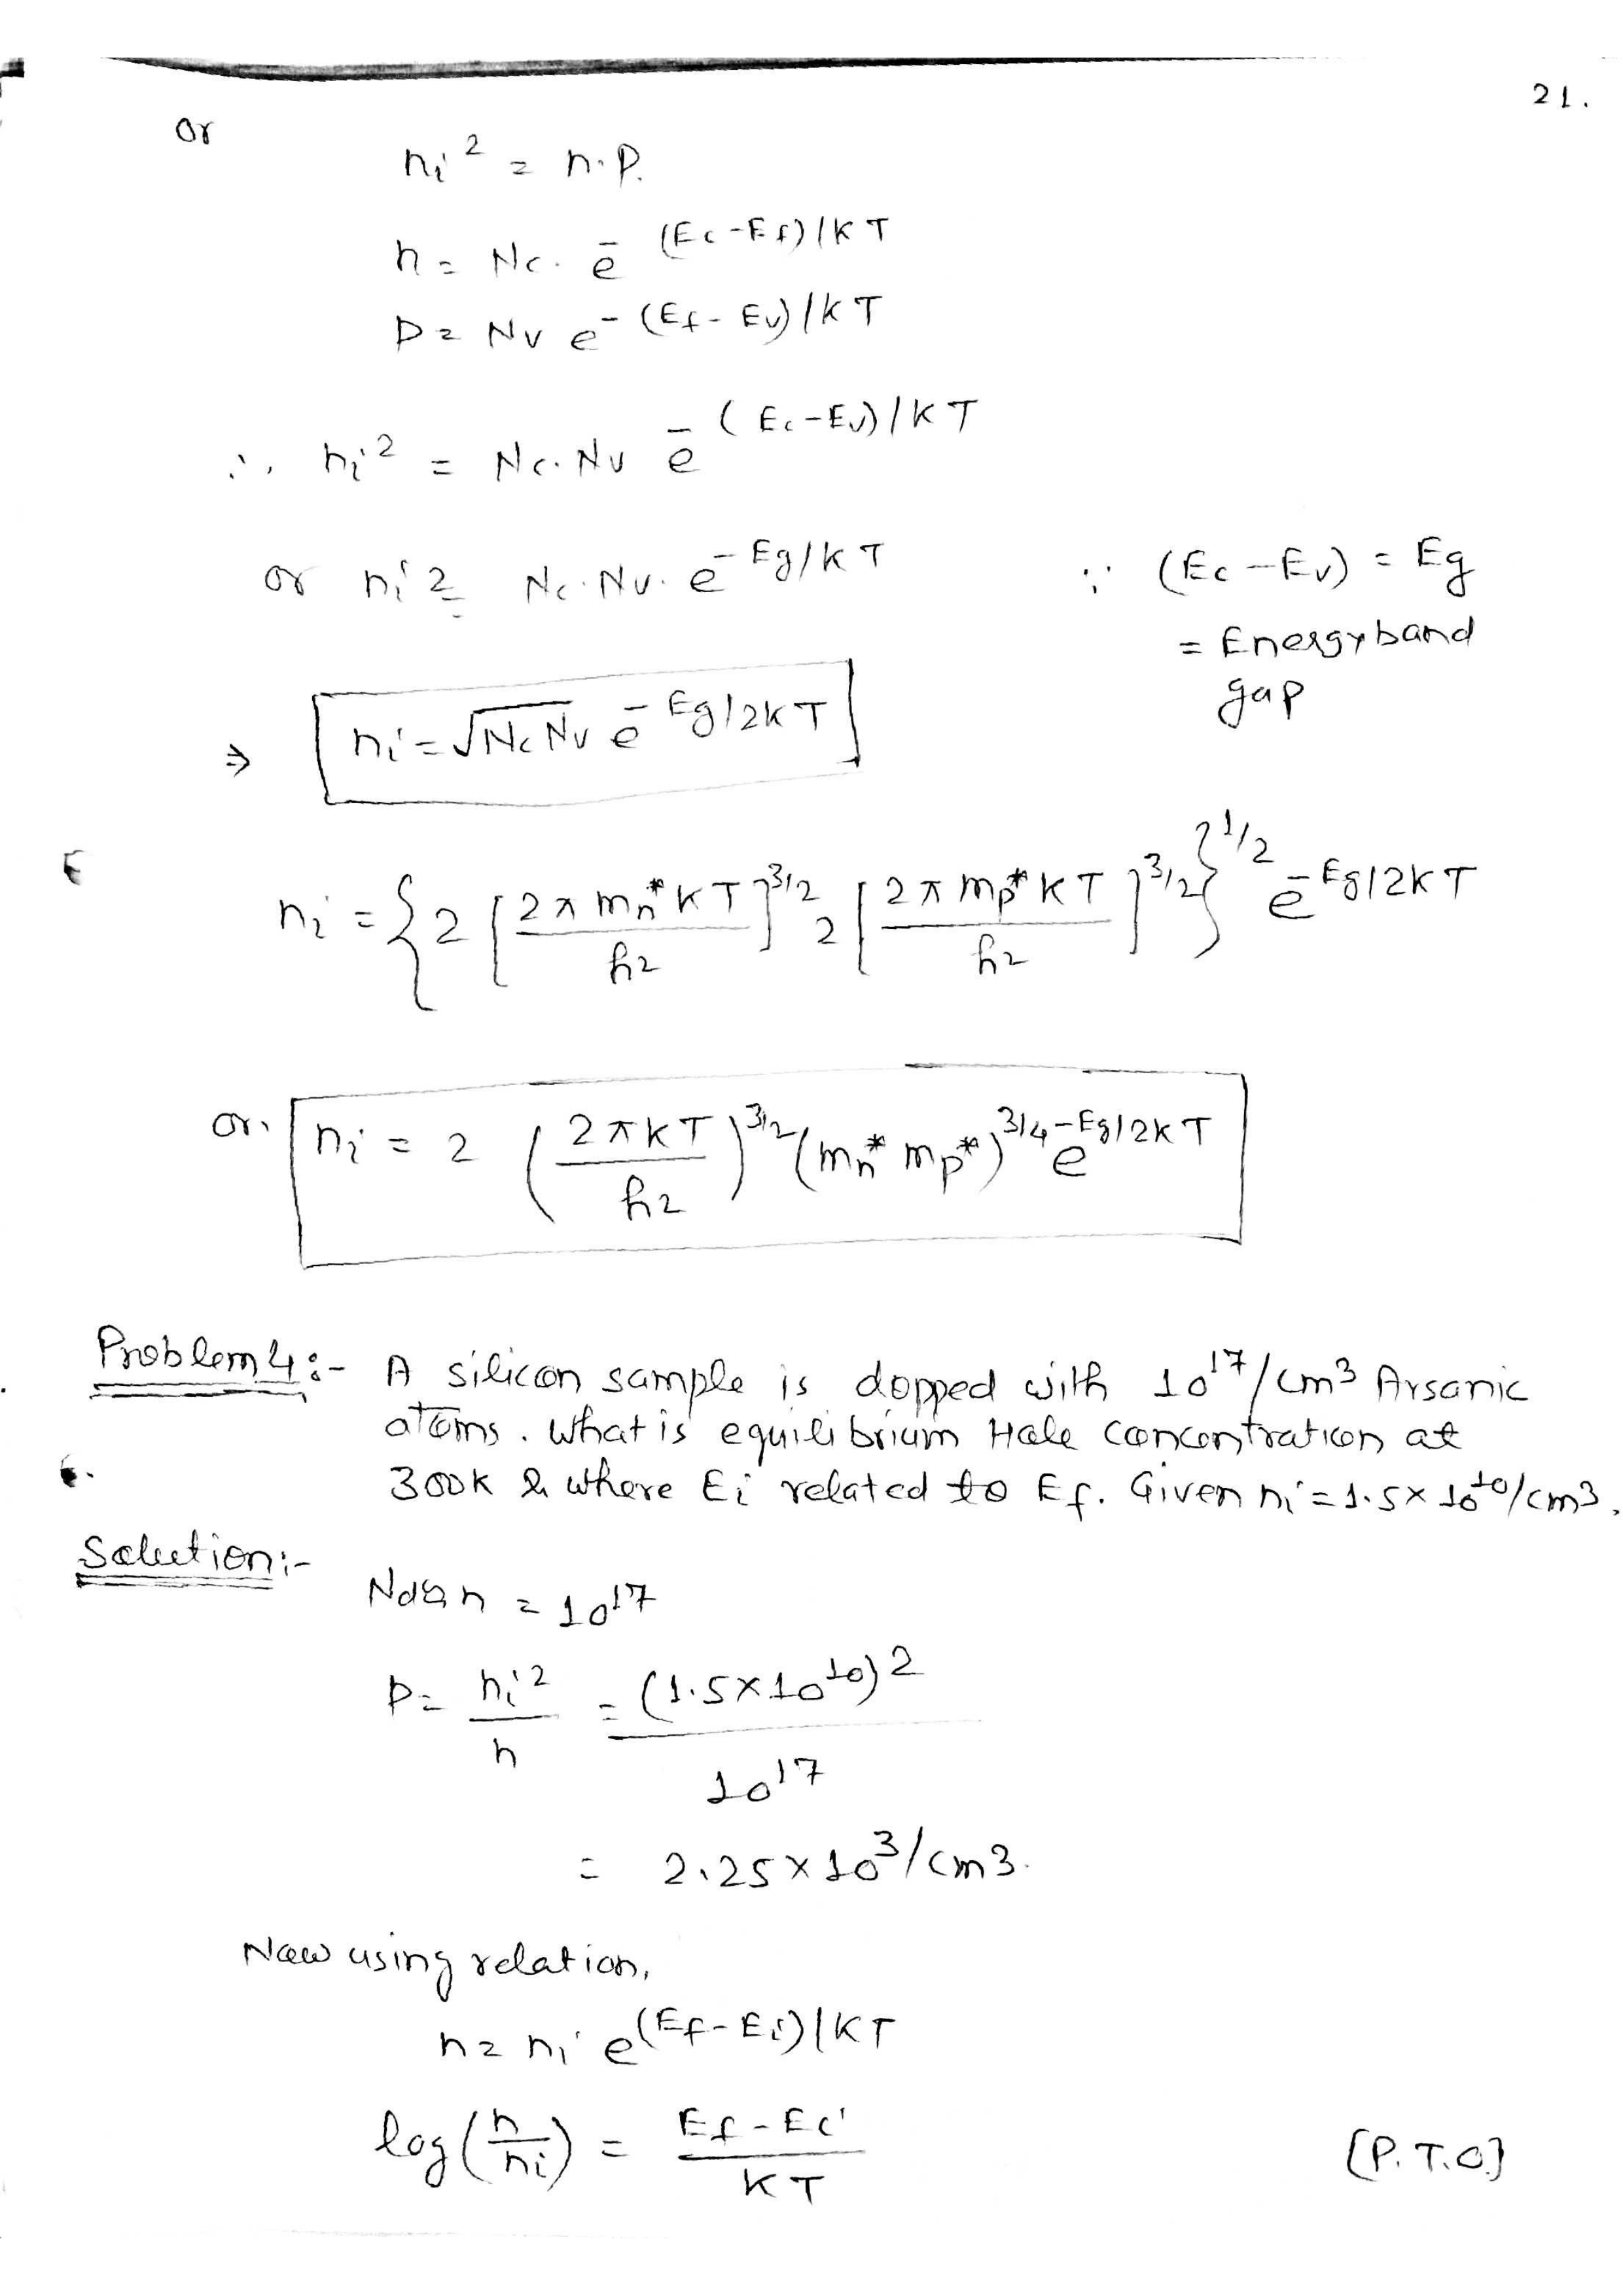 21.
or
ni² = n.p.
n = Nc. e^-(Ec-Ef)/KT
p = Nv e^-(Ef-Ev)/KT
∴ ni² = Nc.Nv e^-(Ec-Ev)/KT
or ni² = Nc.Nv. e^-Eg/KT ∵ (Ec-Ev) = Eg
= Energy band
gap
⇒ ni = √NcNv e^-Eg/2KT
ni = {2[2π mn* KT/h2]^3/2 2[2π mp* KT/h2]^3/2}^1/2 e^-Eg/2KT
or, ni = 2 (2πKT/h2)^3/2 (mn* mp*)^3/4 e^-Eg/2KT
Problem 4:- A silicon sample is dopped with 10^17/cm3 Arsanic
atoms. What is equilibrium Hole concentration at
300K & where Ei related to Ef. Given ni = 1.5×10^10/cm3.
Solution:-
Nd≅n = 10^17
p = ni²/n = (1.5×10^10)2/10^17
= 2.25×10^3/cm3.
Now using relation,
n = ni e^(Ef-Ei)/KT
log(n/ni) = Ef-Ei/KT
[P.T.O]